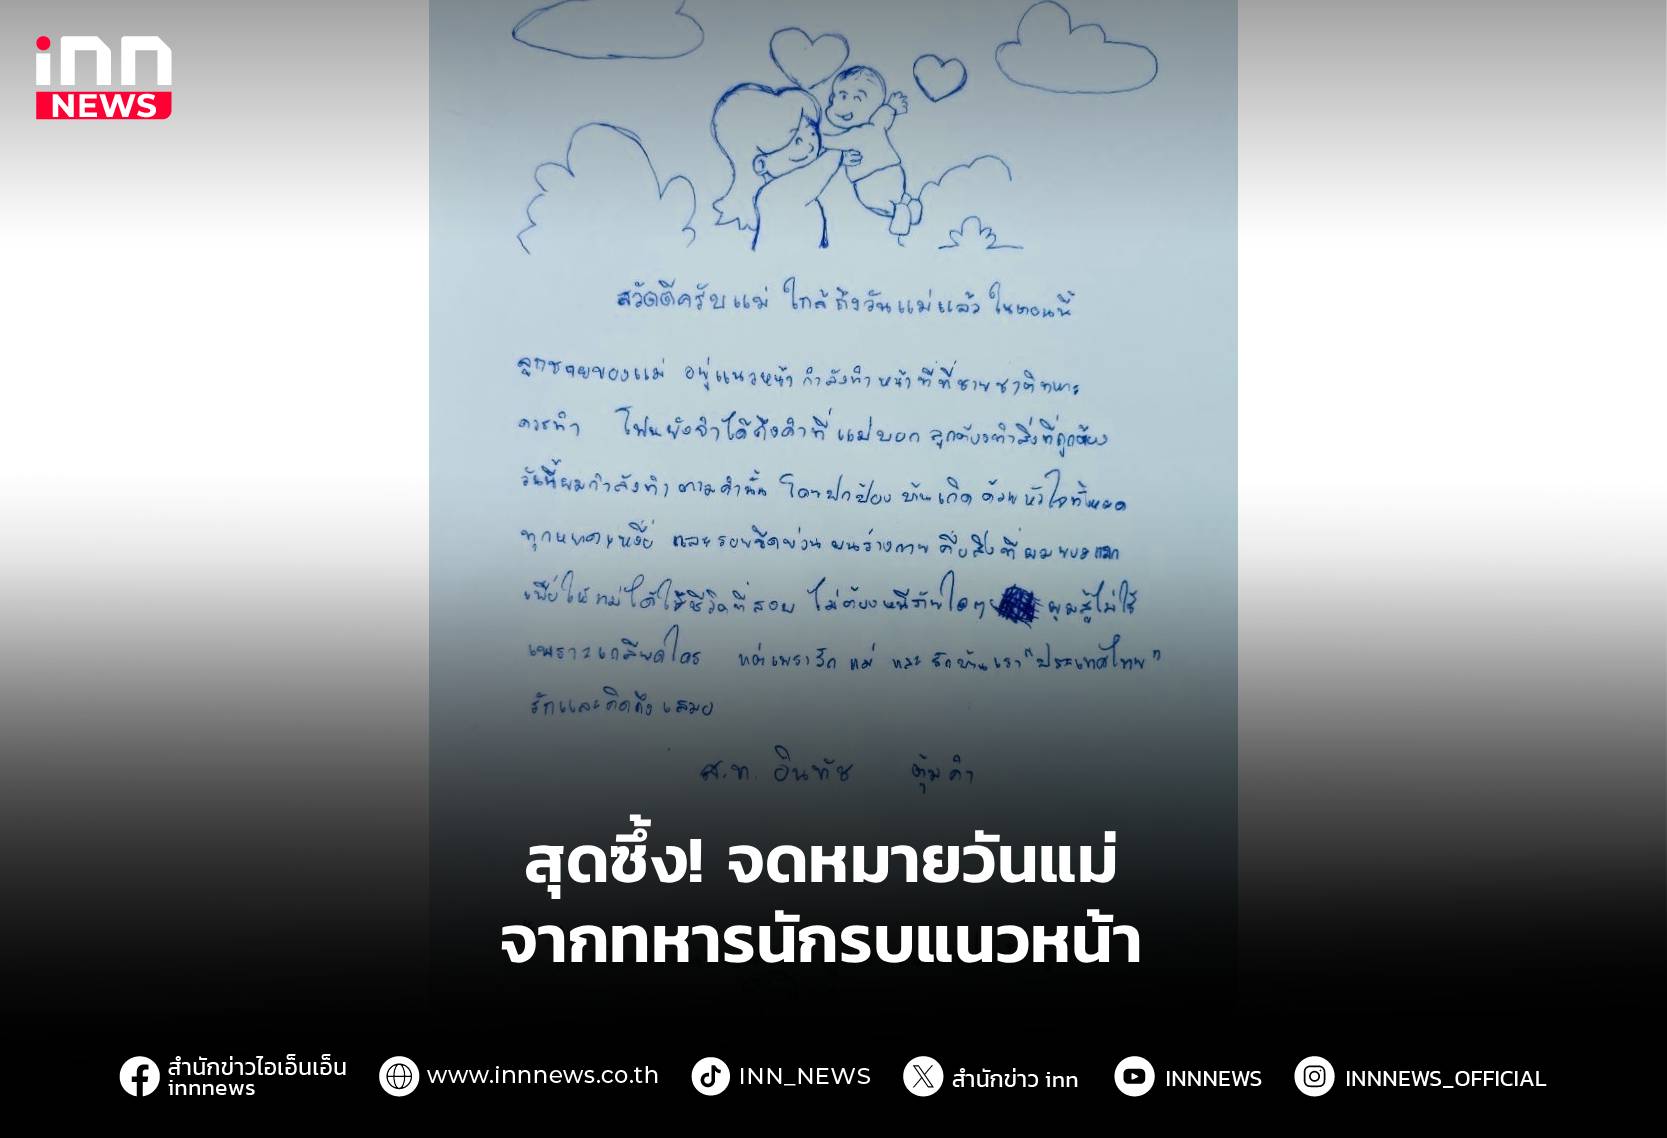 inn
NEWS
สวัดดีครับแม่ ใกล้ถึงวันแม่แล้ว ในตอนนี้
ลูกชายของแม่ อยู่แนวหน้า กำลังทำหน้าที่ที่ชายชาติทหาร
ควรทำ โฟนยังจำได้ถึงคำที่ แม่บอก ลูกต้องทำสิ่งที่ถูกต้อง
วันนี้ผมกำลังทำ ตามคำนั้น โดยปกป้อง บ้านเกิด ด้วย หัวใจทั้งหมด
ทุกหยาดเหงื่อ และรอยขีดข่วน บนร่างกาย คือสิ่งที่ผมยอมแลก
เพื่อให้แม่ได้ใช้ชีวิตที่สงบ ไม่ต้องหนีภัยใดๆ ผมสู้ไม่ใช้
เพราะเกลียดใคร แต่เพราะรัก แม่ และ รักบ้านเรา "ประเทศไทย"
รักและคิดถึง เสมอ
ส.ท. อินทัช ตุ้มคำ
สุดซึ้ง! จดหมายวันแม่
จากทหารนักรบแนวหน้า
สำนักข่าวไอเอ็นเอ็น
innnews
www.innnews.co.th
INN_NEWS
สำนักข่าว inn
INNNEWS
INNNEWS_OFFICIAL